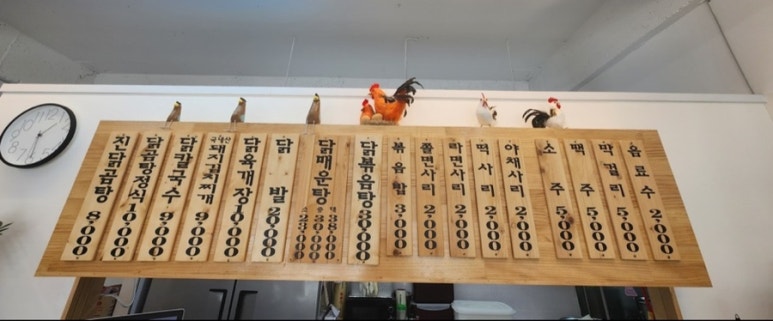 진닭곰탕 8,000
닭곰탕정식 10,000
닭칼국수 9,000
국내산 돼지김치찌개 9,000
닭육개장 10,000
닭발 20,000
닭매운탕 대 38,000 중 30,000 소 23,000
닭볶음탕 30,000
볶음밥 3,000
쫄면사리 2,000
라면사리 2,000
떡사리 2,000
야채사리 2,000
소주 5,000
맥주 5,000
막걸리 5,000
음료수 2,000